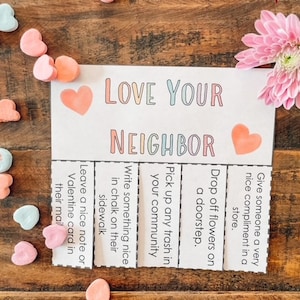 LOVE YOUR
NEIGHBOR
Leave a nice note or
Valentine card in
their ma
Write something nice
in chalk on their
sidewalk.
Pick up any trash in
your community.
Drop off flowers on
a doorstep.
Give someone a very
nice compliment in a
store.